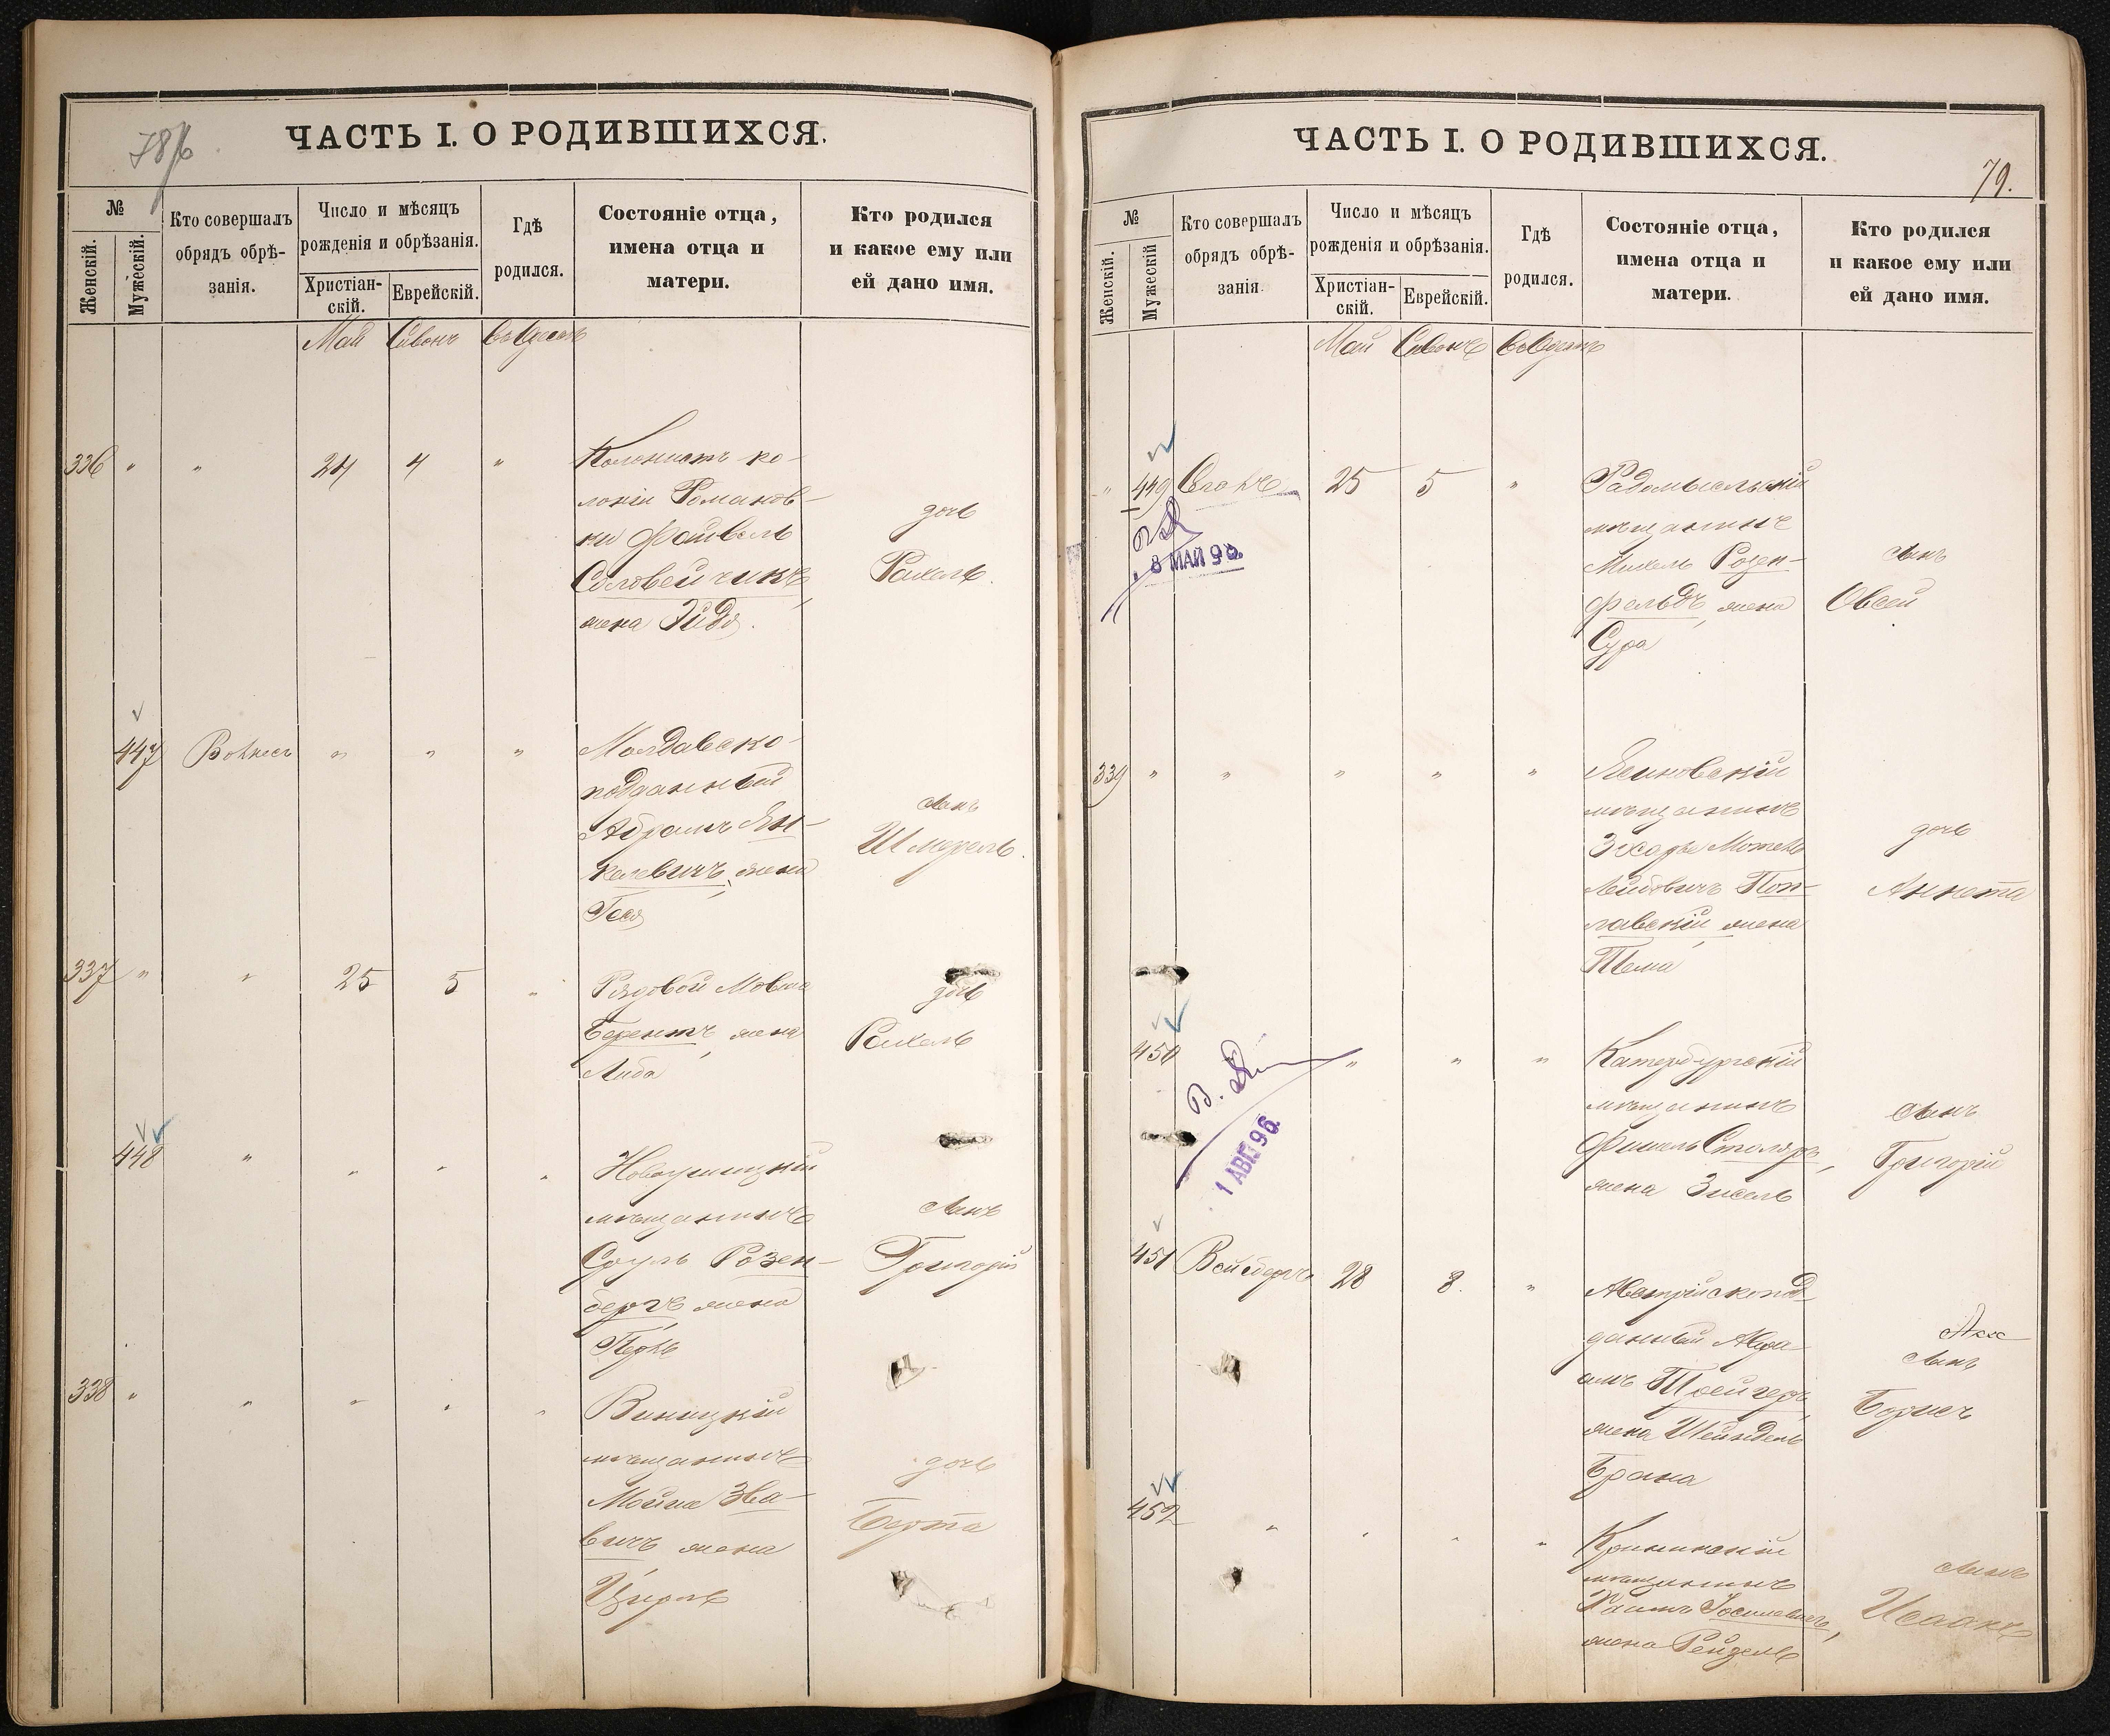 78/б
ЧАСТЬ I. О РОДИВШИХСЯ.
№
Женскій.
Мужескій.
Кто совершалъ
обрядъ обрѣ-
занія.
Число и мѣсяцъ
рожденія и обрѣзанія.
Христіан-
скій.
Еврейскій.
Гдѣ
родился.
Состояніе отца,
имена отца и
матери.
Кто родился
и какое ему или
ей дано имя.
Май Сивонъ въ Одессѣ
336 " " 24 4 " Колонистъ ко-
лоніи Романов-
ки Файвель
Соловейчикъ,
жена Эйдя.
дочь
Рахель.
447 " " "
Молдавско-
подданный
Абрамъ Ян-
келевичъ, жена
Гися
сынъ
Шмерель.
337 " " 25 5 " Рядовой Мовша
Берентъ, жена
Либа
дочь
Рахель
448 " " " " Новоушицкій
мѣщанинъ
Сруль Розен-
бергъ, жена
Перль
сынъ
Григорій
338 " " " " " Виницкій
мѣщанинъ
Мойша Зва-
вичъ жена
Цирль
дочь
Берта
ЧАСТЬ I. О РОДИВШИХСЯ.
79.
№
Женскій.
Мужескій
Кто совершалъ
обрядъ обрѣ-
занія.
Число и мѣсяцъ
рожденія и обрѣзанія.
Христіан-
скій.
Еврейскій.
Гдѣ
родился.
Состояніе отца,
имена отца и
матери.
Кто родился
и какое ему или
ей дано имя.
Май Сивонъ въ Одессѣ
" 449 25 5 " Радомысльскій
мѣщанинъ
Михель Розен-
фельдъ, жена
Сура
сынъ
Овсей
8 МАЙ 9
339 " " " " "
мѣщанинъ
Мотель
Лейбовичъ Поп-
лавскій, жена
Тема
дочь
Аннета
450 " " " Катербургскій
мѣщанинъ
Фишель Столяръ,
жена Зисель
сынъ
Григорій
1 АВГ 96.
451 Вайсбергъ 28 8. " Австрійскопод-
данный Абра-
амъ Трейгеръ,
жена Шейндель
Брана
сынъ
Борисъ
452 " " " " Крынинскій
мѣщанинъ
Хаимъ Іосилевичъ,
жена Рейзель
сынъ
Исаакъ